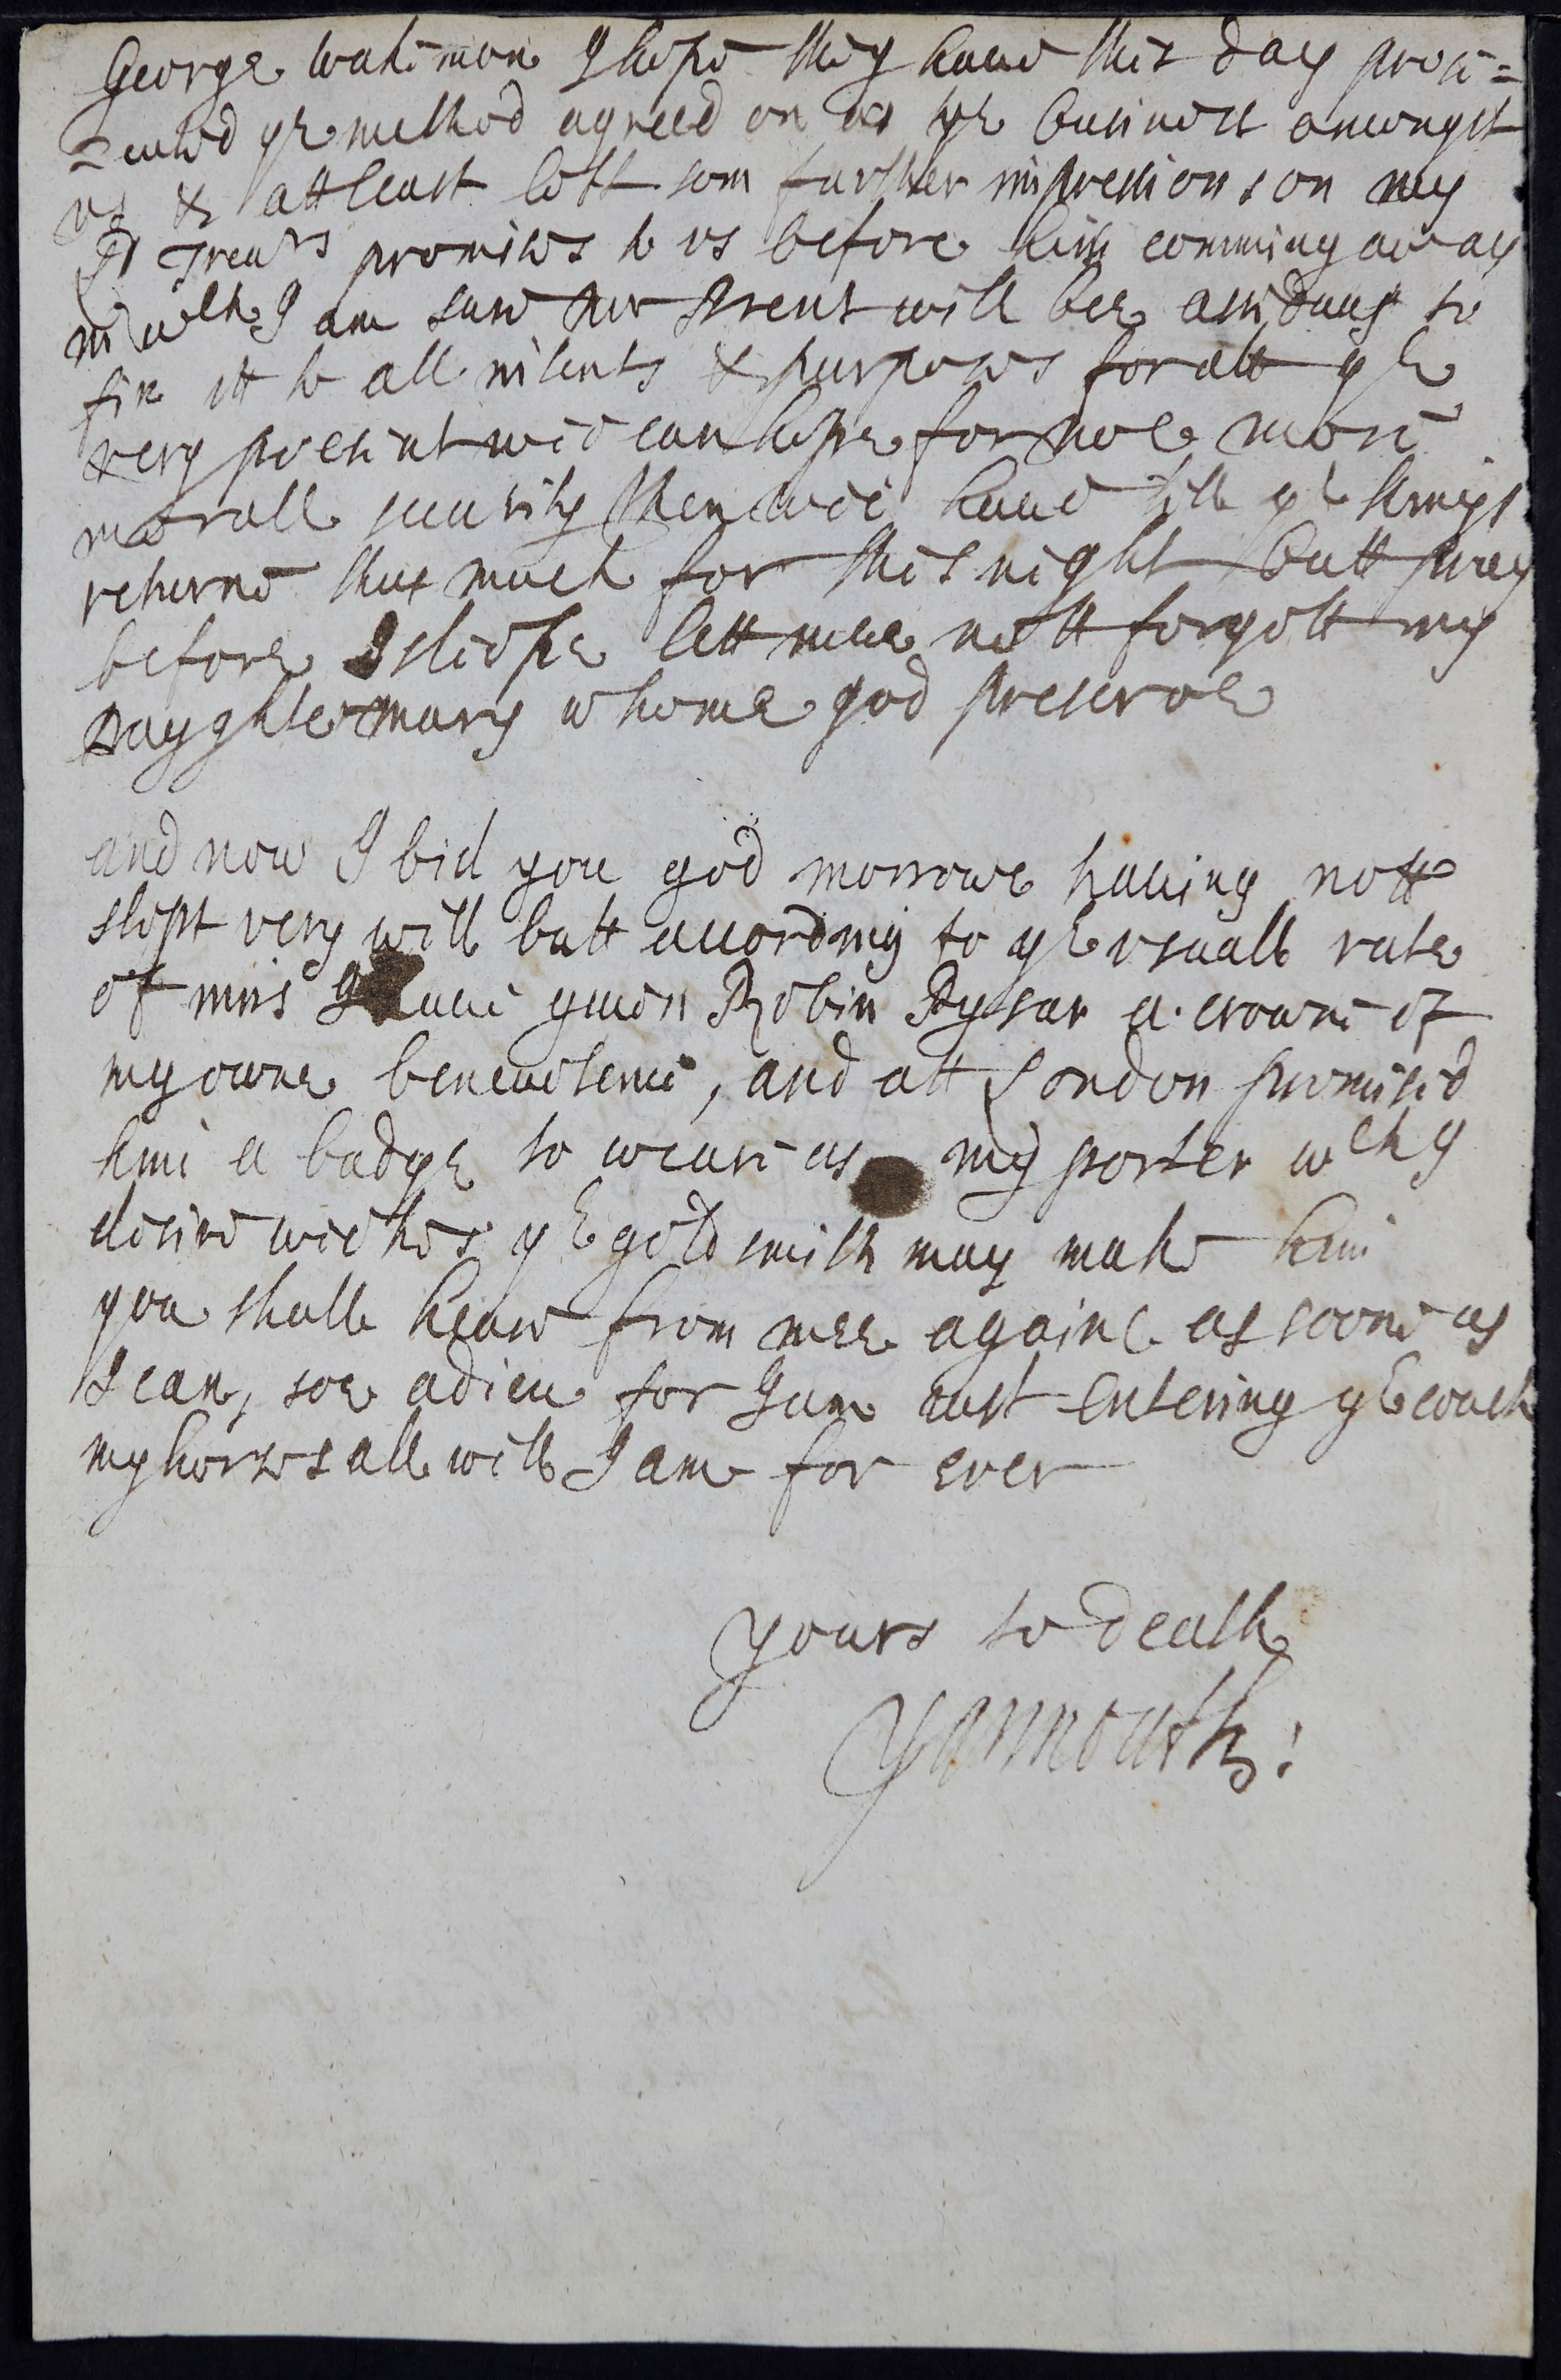 George wakeman I hope they haue this day prose=
=cuted ye method agreed on as to ye businesse amongst
vs & att least lett som further impressions on my
Ld Trears promises to vs before his comming away
in wch I am sure mr Brent will bee assiduus to
fix itt to all intents & purposes for att ye
very present wee can hope for noe more
morall security then wee haue till ye kings
returne thus much for this night butt pray
before I sleepe lett mee nott forgett my
Daughter mary whome god preserve

and now I bid you god morrowe hauing nott
slept very well butt according to ye vsuall rate
of mins I haue giuen Robin a crowne of
my owne beneuolence, and att London promised
him a badge to weare as my porter wch I
desire wickes ye goldsmith may make him
you shall heare from mee againe as soone as
I can, soe adieu for I am iust entering ye coach
my horses all well I am for ever

yours to death
Yarmouth: